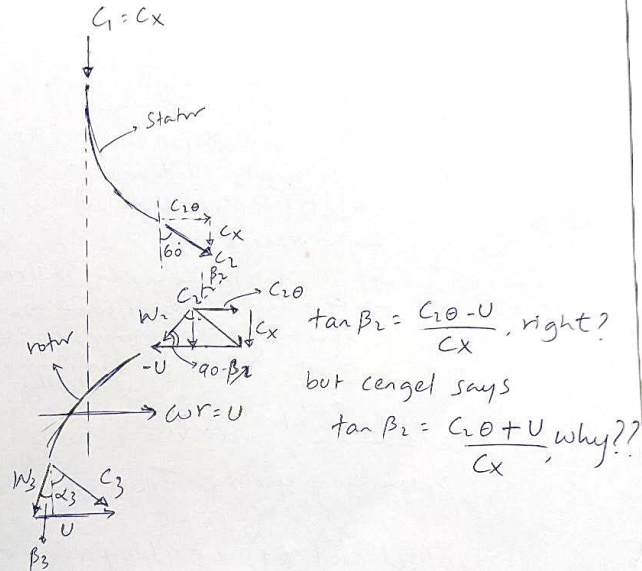 C₁ = Cx
Stator
C₂θ
Cx
60°
C₂
β₂
C₂
C₂θ
W₂
Cx
-U
90-β₂
rotor
ωr = U
W₃
α₃
C₃
U
β₃
tan β₂ = (C₂θ - U) / Cx , right?
but cengel says
tan β₂ = (C₂θ + U) / Cx , why??